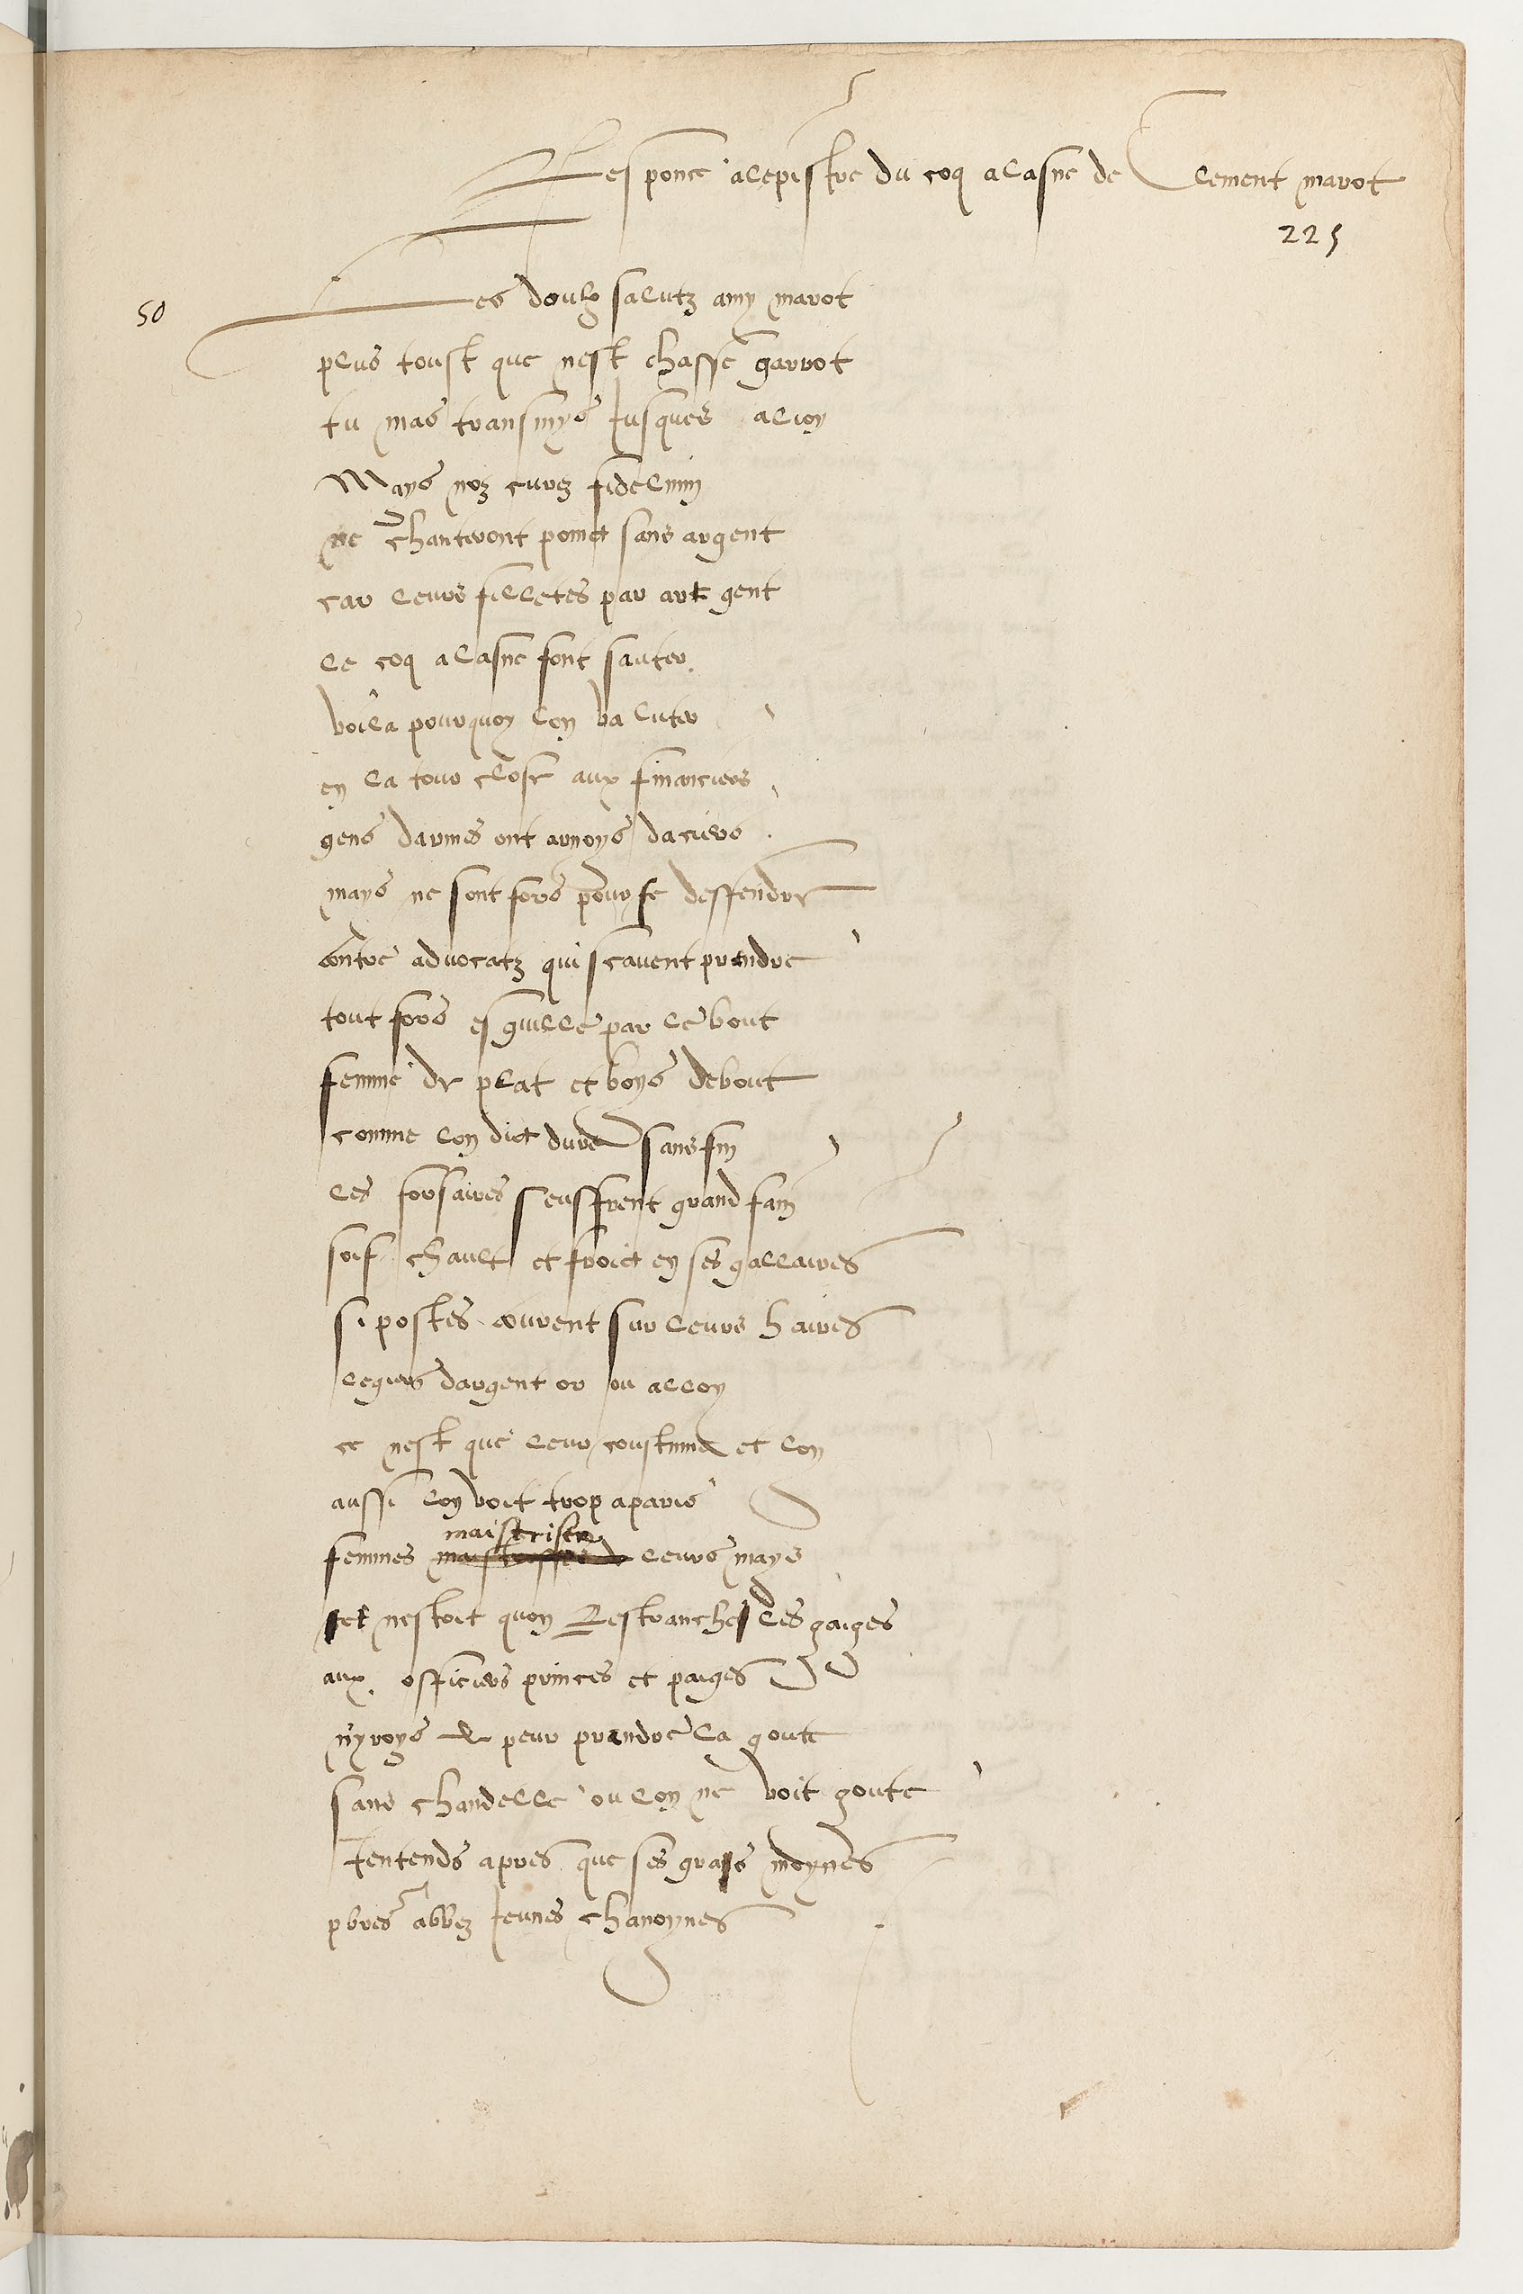 Responce alepistre du coq alasne de Clement marot
225
50
Les doulx salutz amy marot
plus toust que nest chasse garrot
tu mas transmys Jusques alion
Mays noz curez fidelium
ne chanteront poinct sans argent
car leurs filletes par art gent
le coq alasne font sauter
voila pourquoy lon va luter
en la tour close aux financiers
gens darmes ont arnoys daciers
mays ne sont fors pour se deffendre
contre advocatz qui scavent prendre
tout fors esguille par le bout
femme de plat et boys debout
comme lon dict dure sans fin
les forsaires seuffrent grand fain
soif chault et froict en ses gallaires
si postes courent sur leurs haires
legiers dargent or ou alloy
ce nest que leur coustume et loy
aussi lon voit trop aparis
femmes maistriser leurs marys
et nestoit quon Restranche les gaiges
aux officiers princes et paiges
nyroys de peur prandre la goute
sans chandelle ou lon ne voit goute
Jentends apres que ses gras moynes
pbres abbez Jeunes chanoynes